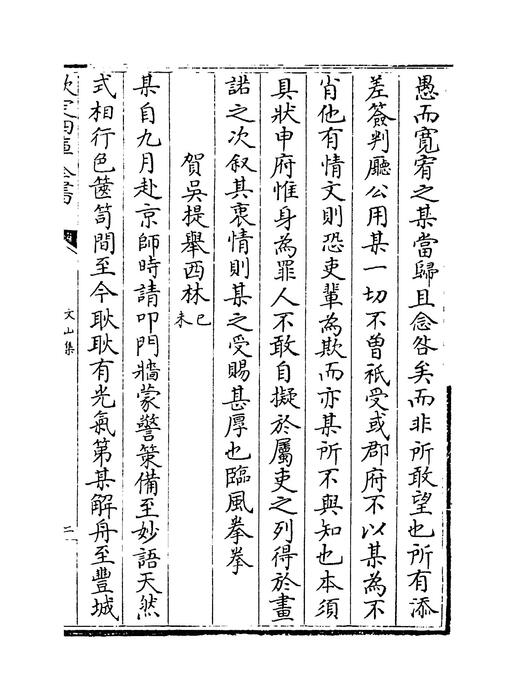 愚而寛宥之某當歸且念咎矣而非所敢望也所有添
差簽判廳公用某一切不曾祇受或郡府不以某為不
肖他有情文則恐吏輩為欺而亦某所不與知也本須
具狀申府惟身為罪人不敢自擬於屬吏之列得於畫
諾之次叙其衷情則某之受賜甚厚也臨風拳拳
賀吳提舉西林己未
某自九月赴京師時請叩門牆蒙警策備至妙語天然
式相行色篋笥間至今耿耿有光氣第某解舟至豐城
欽定四庫全書
文山集